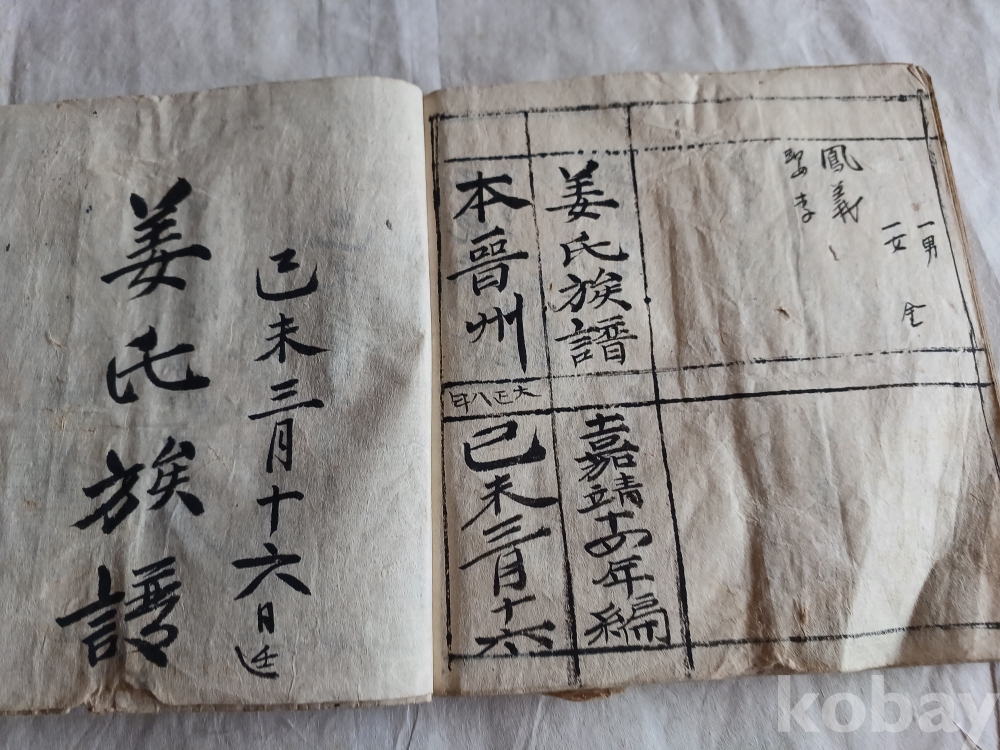 一男
一女
鳳義
姜氏族譜
嘉靖十四年編
本晉州
大正八年
己未三月十六
己未三月十六日
姜氏族譜
kobay